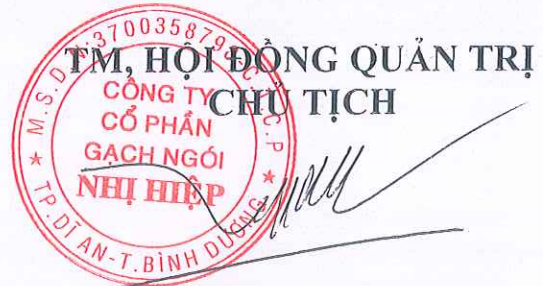 TM, HỘI ĐỒNG QUẢN TRỊ
CHỦ TỊCH
M.S.D.N:3700358798-C.T.C.P
CÔNG TY
CỔ PHẦN
GẠCH NGÓI
NHỊ HIỆP
TP.DĨ AN-T.BÌNH DƯƠNG